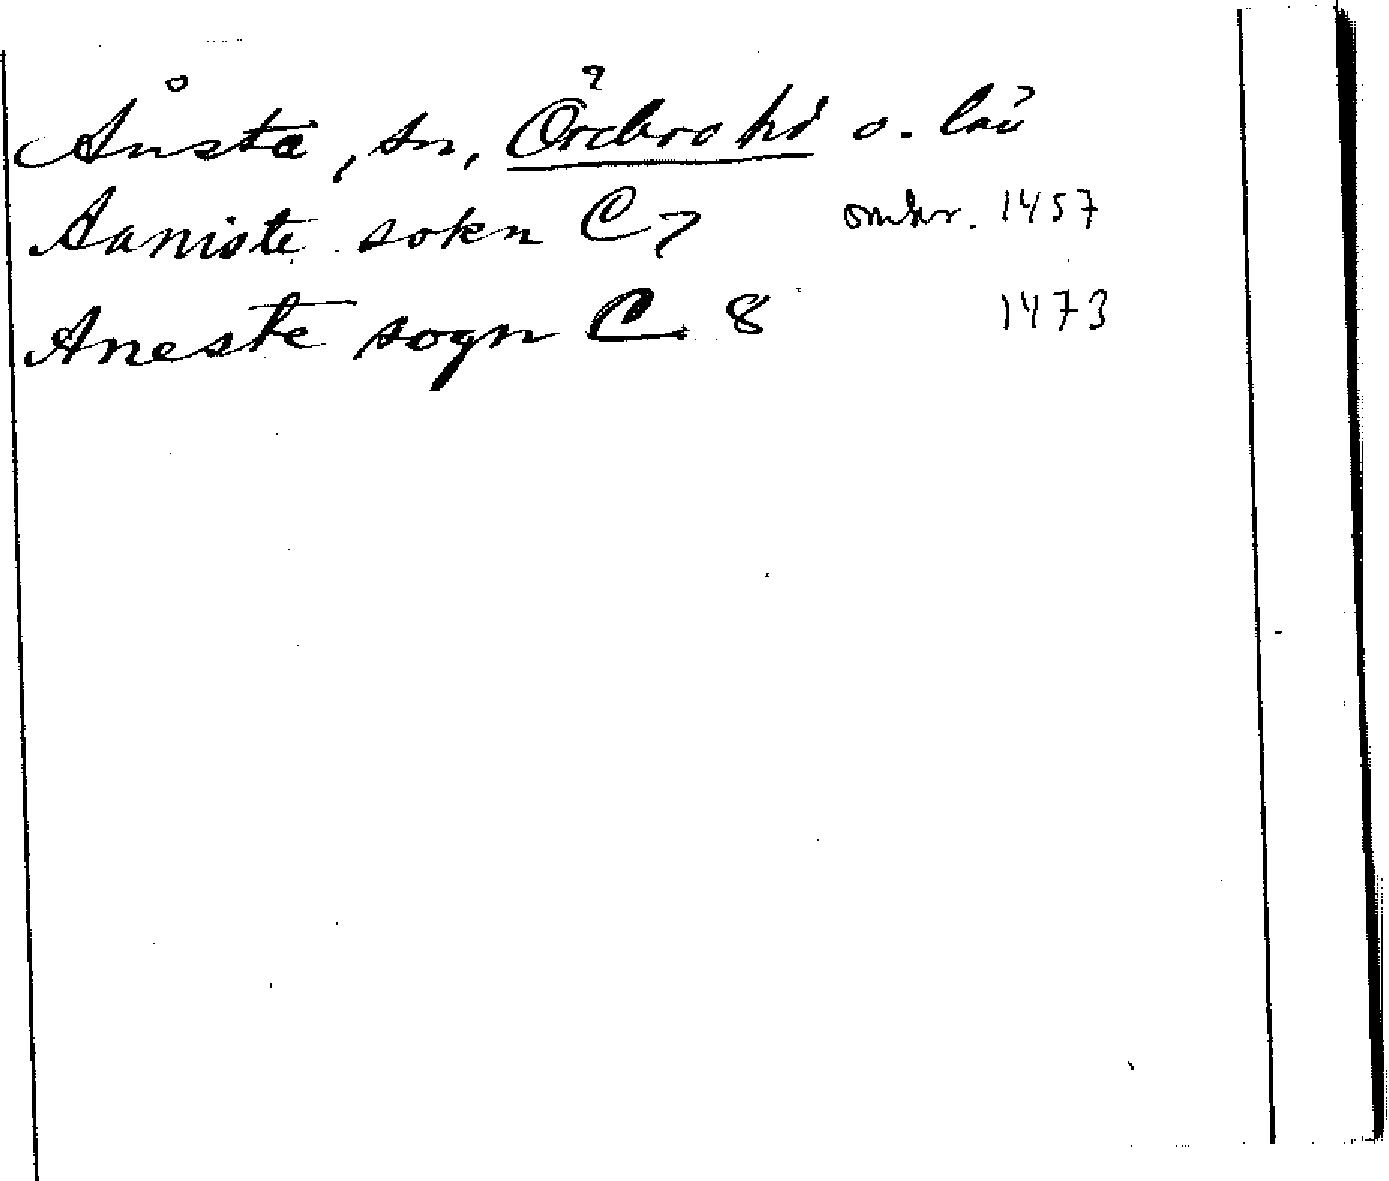 Ånsta, sn, Örebro hd o. län
Aaniste sokn C 7 omkr. 1457
Aneste sogn C 8 1473